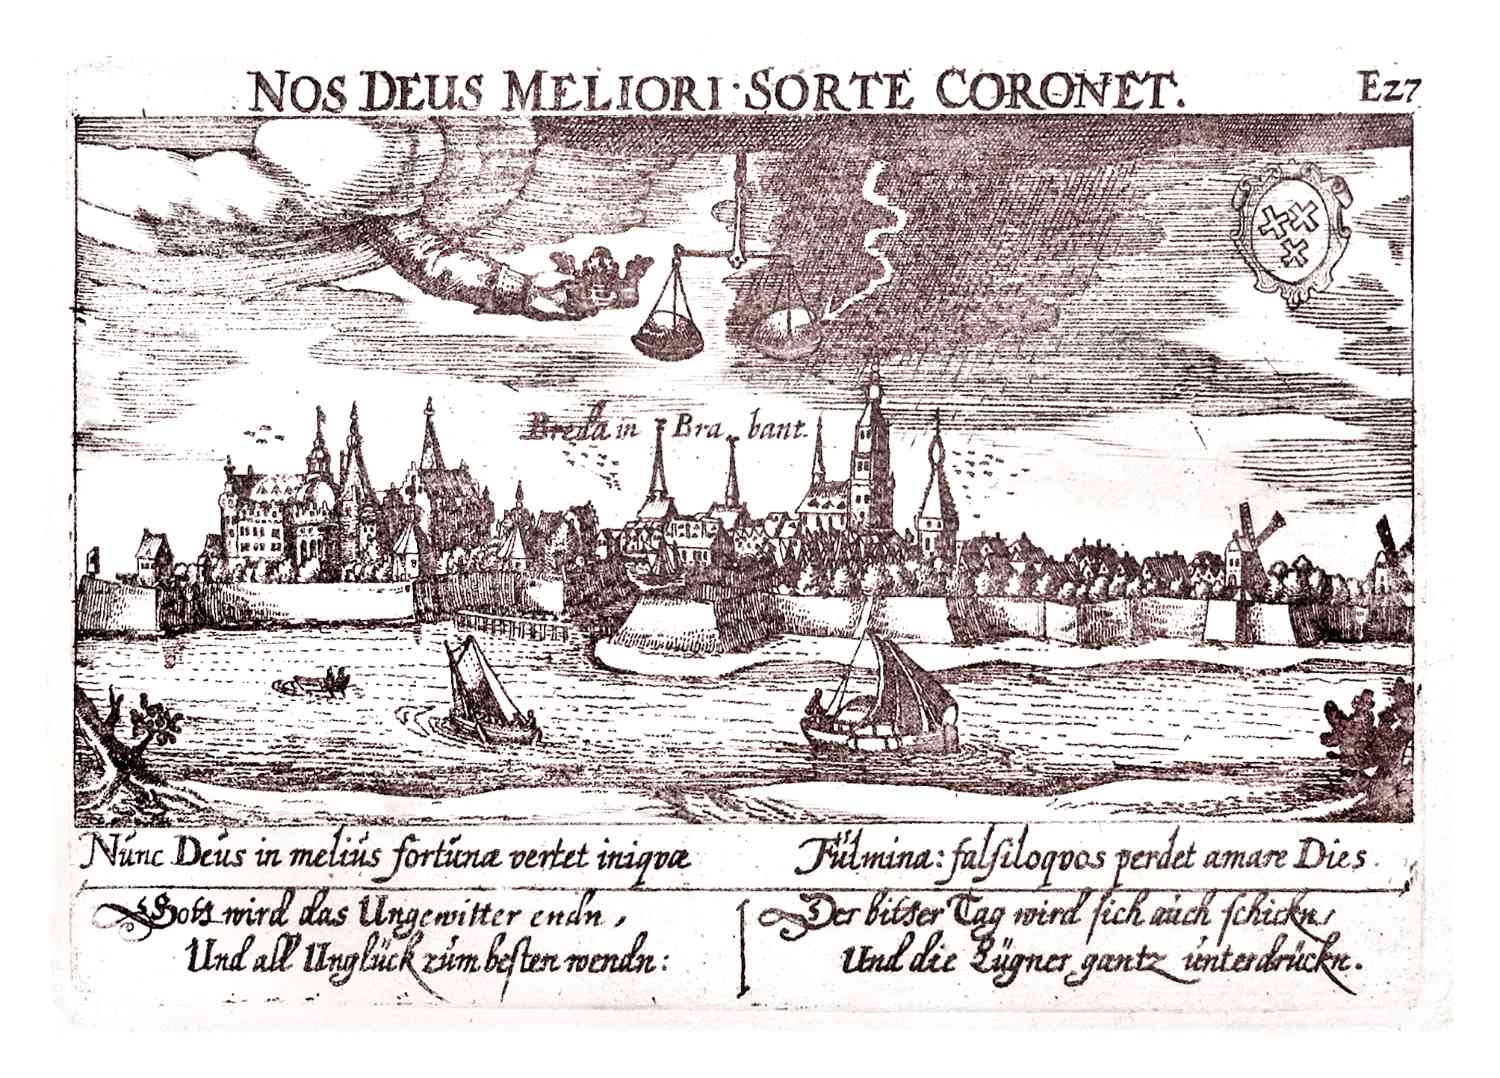 NOS DEUS MELIORI·SORTE CORONET.
E27
Breda in Brabant.
Nunc Deus in melius fortunæ vertet iniqvæ
Fulmina: falsiloqvos perdet amare Dies.
Gott wird das Ungewitter endn,
Und all Unglück zum besten wendn:
Der bitter Tag wird sich auch schickn,
Und die Lügner gantz unterdrückn.